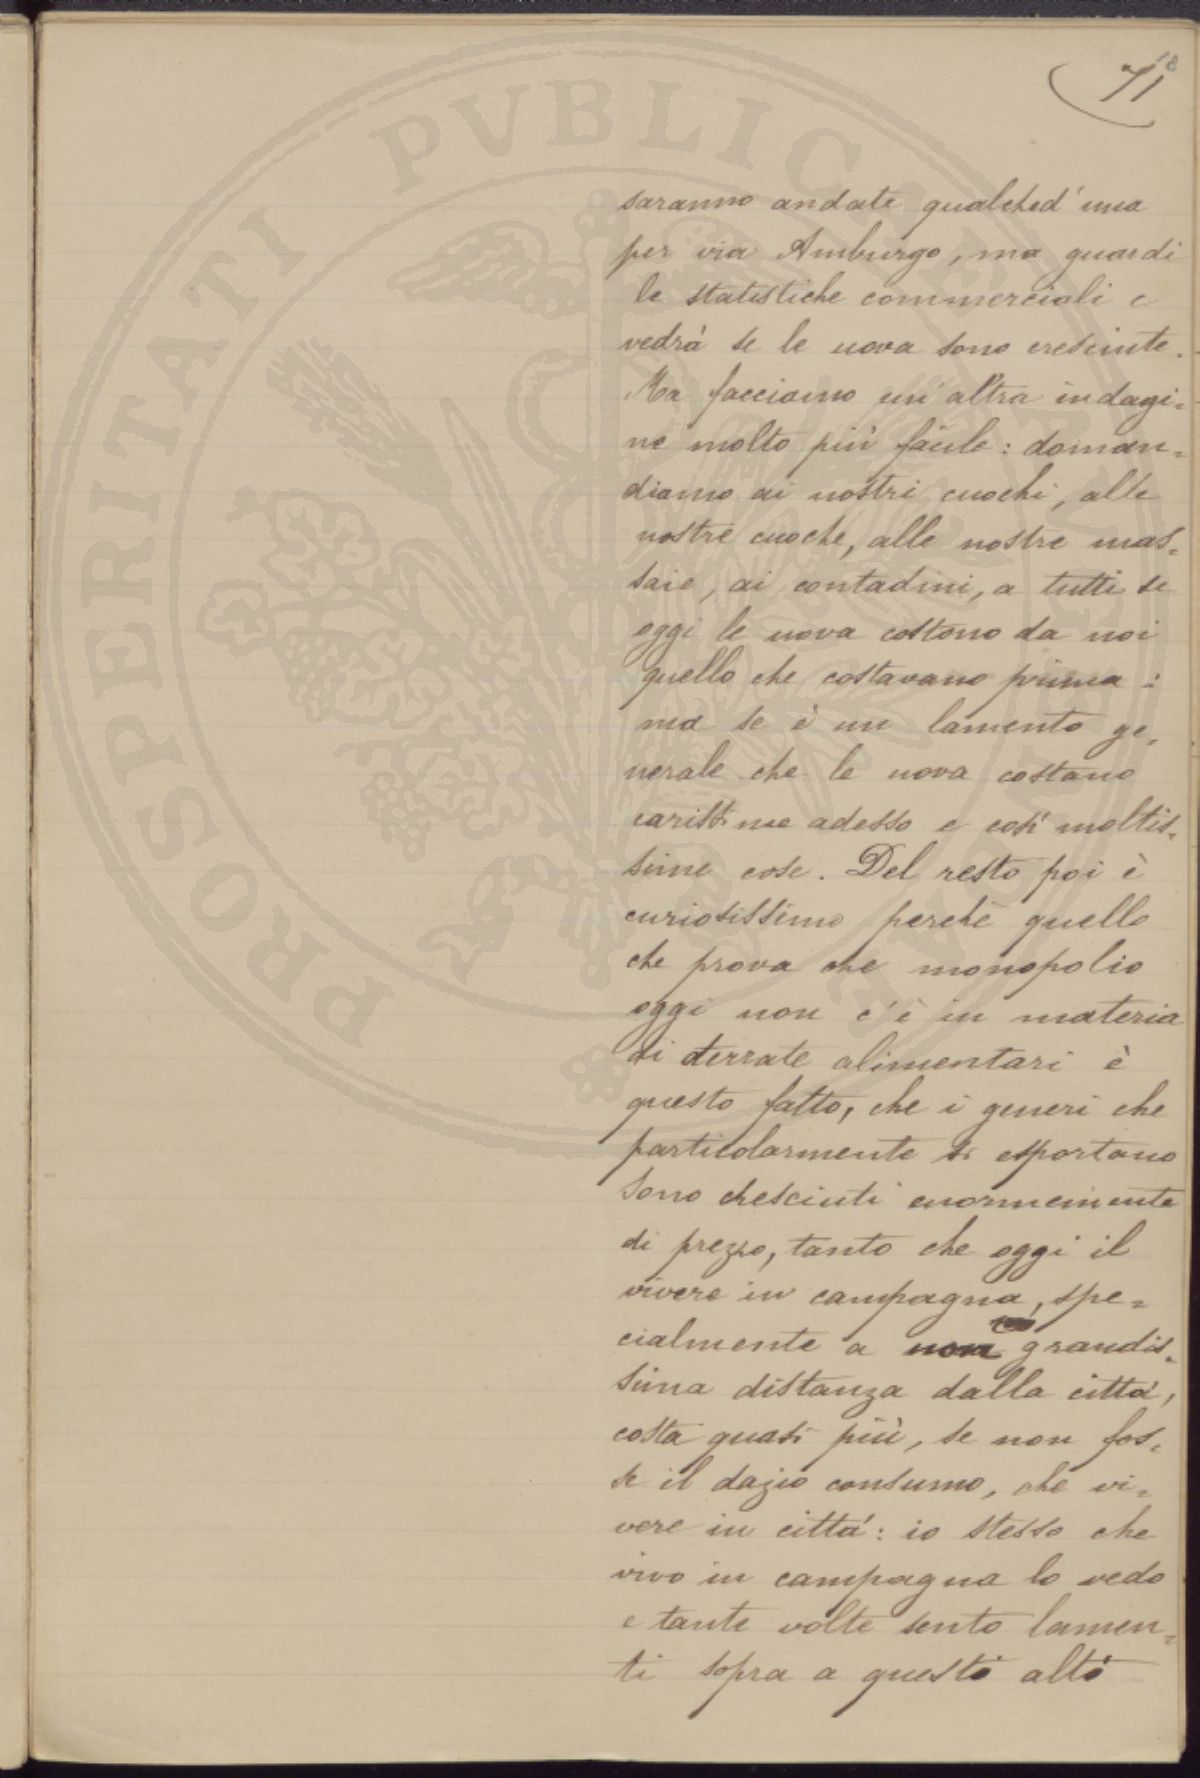 71
saranno andate qualched'una
per via Amburgo, ma guardi
le statistiche commerciali e
vedrà se le uova sono cresciute.
Ma facciamo un'altra indagi=
ne molto più facile: doman=
diamo ai nostri cuochi, alle
nostre cuoche, alle nostre mas=
saie, ai contadini, a tutti se
oggi le uova costono da noi
quello che costavano prima:
ma se è un lamento ge=
nerale che le uova costano
carissime adesso e così moltis=
sime cose. Del resto poi è
curiosissimo perchè quello
che prova che monopolio
oggi non c'è in materia
di derrate alimentari è
questo fatto, che i generi che
particolarmente si esportano
sono cresciuti enormemente
di prezzo, tanto che oggi il
vivere in campagna, spe=
cialmente a non grandis=
sima distanza dalla città,
costa quasi più, se non fos=
se il dazio consumo, che vi=
vere in città: io stesso che
vivo in campagna lo vedo
e tante volte sento lamen=
ti sopra a questo alto
PROSPERITATI PVBLICAE